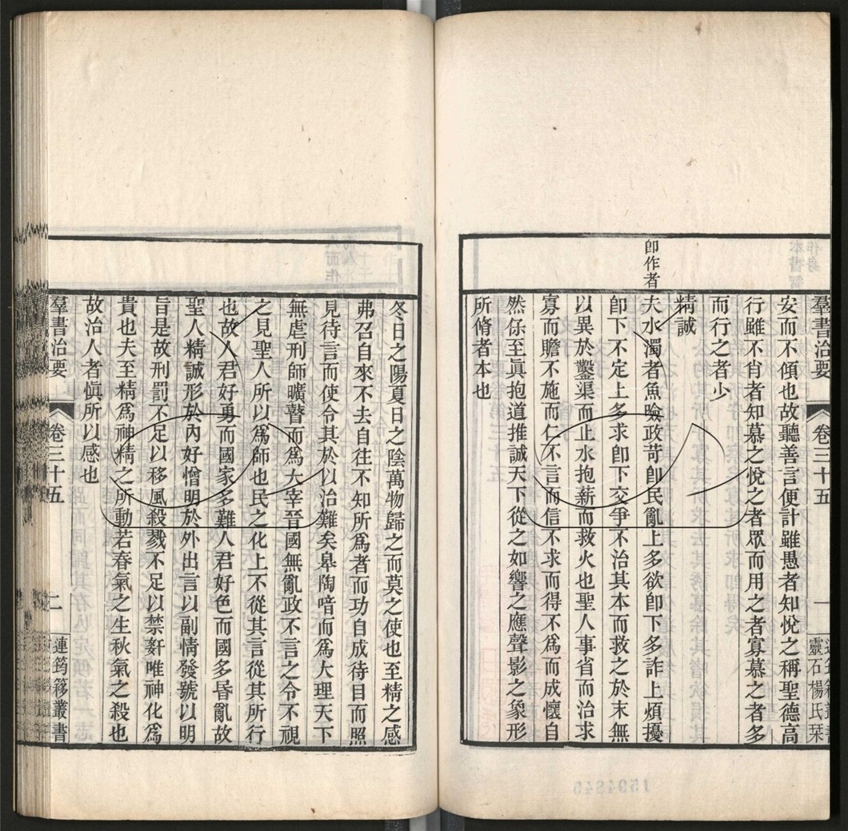 安而不傾也故聽善言便計雖愚者知悅之稱聖德高
行雖不肖者知慕之悅之者眾而用之者寡慕之者多
而行之者少
精誠
卽作者
夫水濁者魚噞政苛卽民亂上多欲卽下多詐上煩擾
卽下不定上多求卽下交爭不治其本而救之於末無
以異於鑿渠而止水抱薪而救火也聖人事省而治求
寡而贍不施而仁不言而信不求而得不爲而成懷自
然保至真抱道推誠天下從之如響之應聲影之象形
所脩者本也
羣書治要
卷三十五
一
靈石楊氏栞
冬日之陽夏日之陰萬物歸之而莫之使也至精之感
弗召自來不去自往不知所爲者而功自成待目而照
見待言而使令其於以治難矣皋陶喑而爲大理天下
無虐刑師曠瞽而爲大宰晉國無亂政不言之令不視
之見聖人所以爲師也民之化上不從其言從其所行
也故人君好勇而國家多難人君好色而國多昏亂故
聖人精誠形於內好憎明於外出言以副情發號以明
旨是故刑罰不足以移風殺戮不足以禁姧唯神化爲
貴也夫至精爲神精之所動若春氣之生秋氣之殺也
故治人者愼所以感也
羣書治要
卷三十五
二
連筠簃叢書
1594845